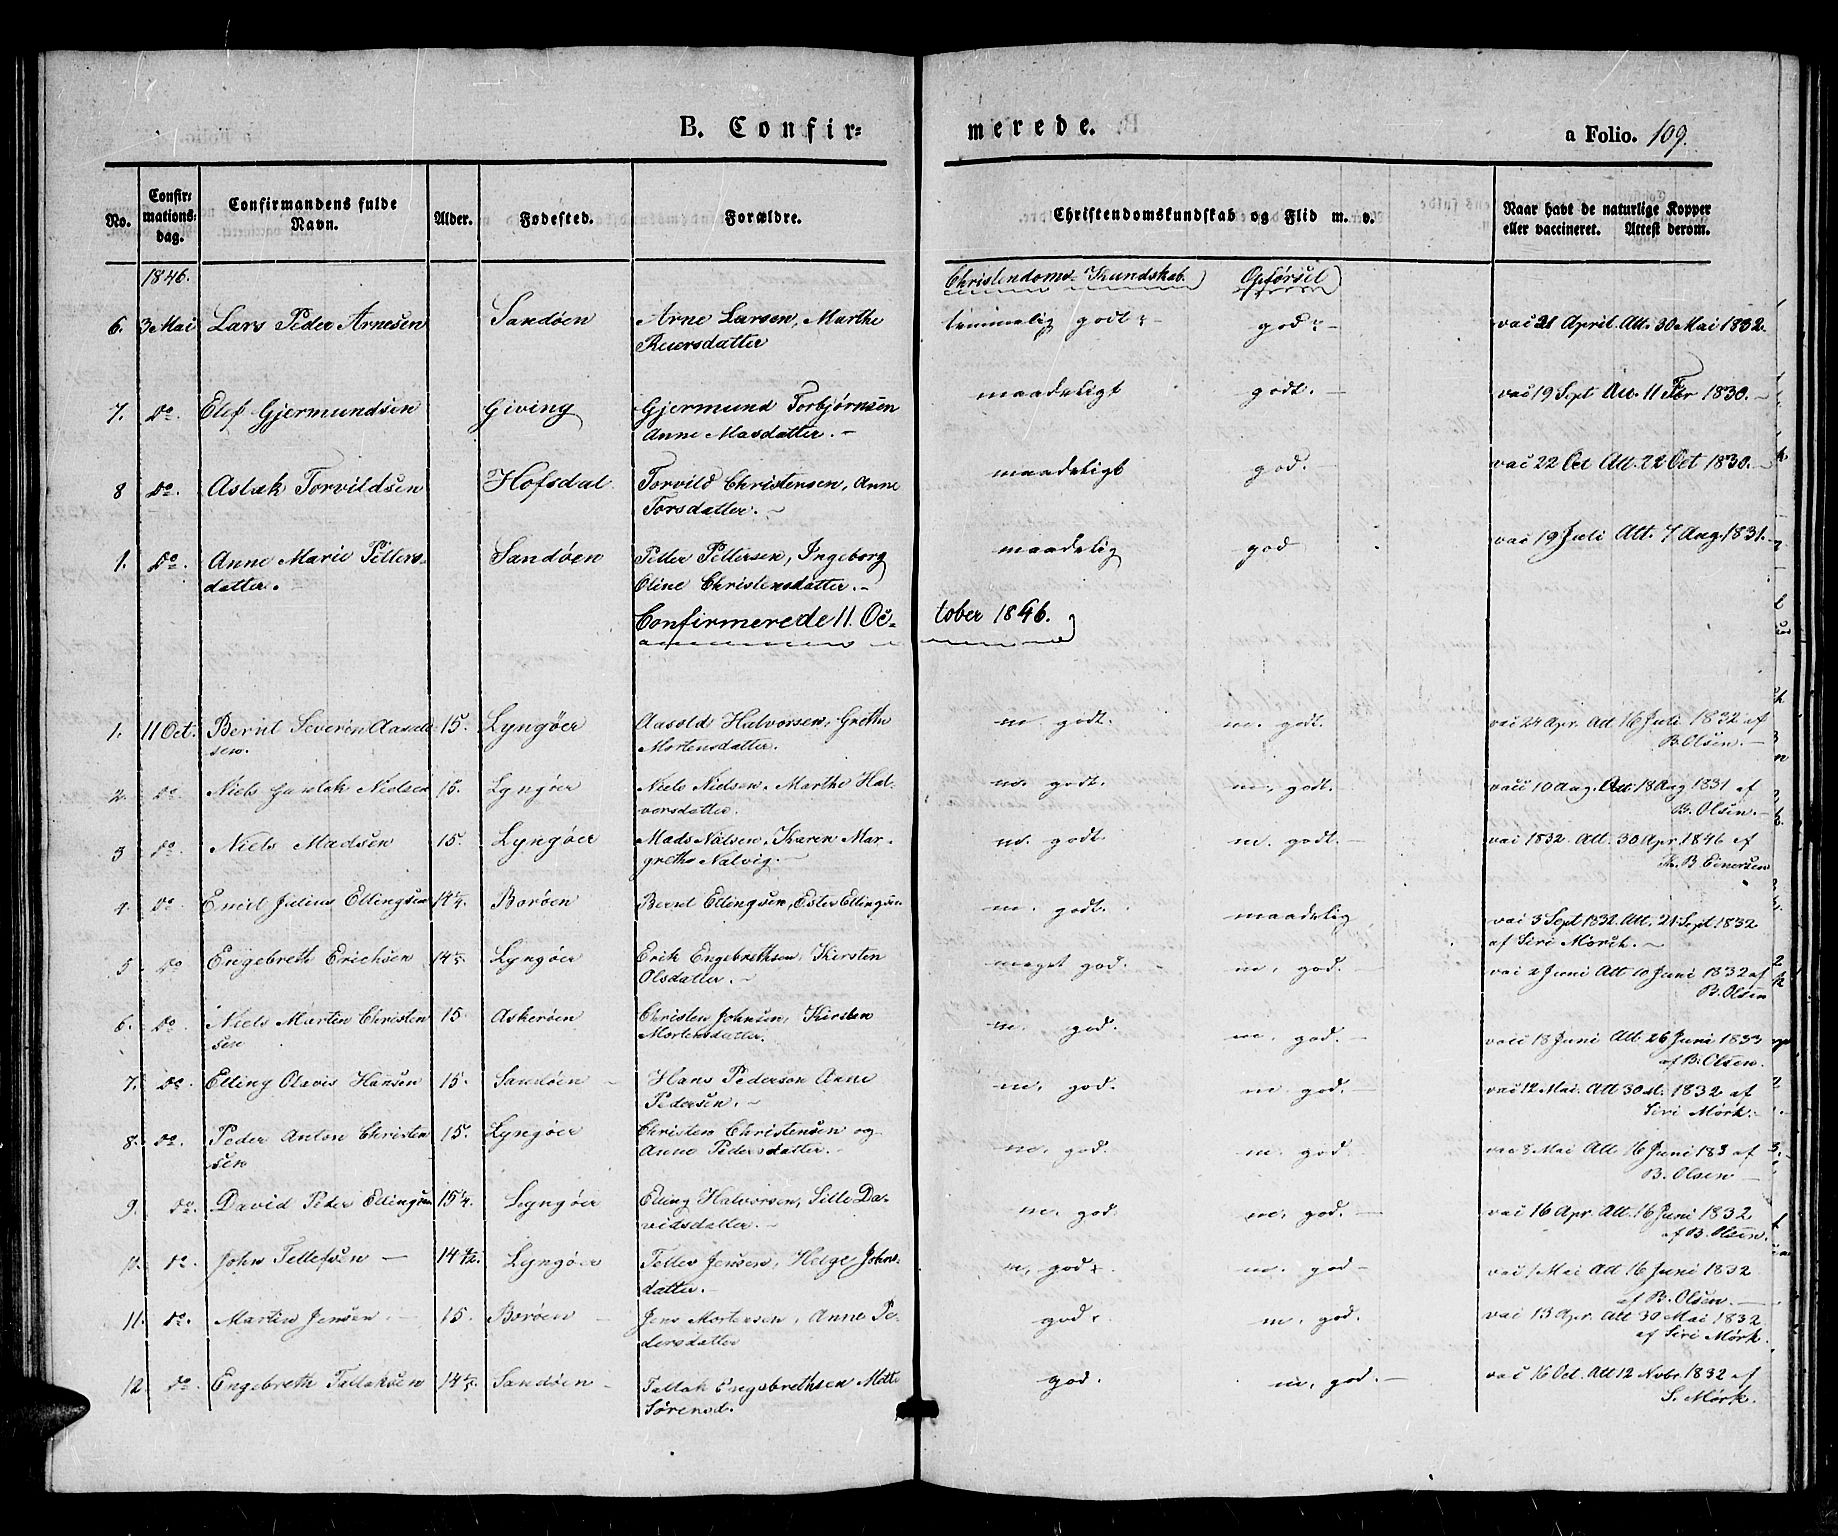 B. Confir=
merede.
a Folio. 109.
No.
Confir=
mations=
dag.
Confirmandens fulde
Navn.
Alder.
Fødested.
Forældre.
Christendomskundskab og Flid m. v.
Naar havt de naturlige Kopper
eller vaccineret. Attest derom.
1846.
Christendoms Kundskab
Opførsel
6. 3 Mai Lars Peder Arnesen Sandøen Arne Larsen, Marthe temmelig godt god vac 21 April Att. 30 Mai 1832.
Reiersdatter
7. Do. Elef Gjermundsen Giving Gjermund Torbjørnsen maadeligt godt. vac 19 Sept Att. 11 1830.
Anne Masdatter.
8 Do. Aslak Torvildsen Hofsdal Torvild Christensen, Anne maadeligt god. vac 22 Oct Att. 22 Oct 1830.
Torsdatter.
1. Do. Anne Marie Petters= Sandøen Petter Pettersen, Ingeborg maadelig god vac 19 Juli Att. 7 Aug. 1831.
datter. Oline Christensdatter.
Confirmerede 11. Oc=tober 1846.
1. 11 Oct. Bernt Severin 15. Lyngøer Aasold Halvorsen, Grethe m. godt. m. godt. vac 24 Apr. Att 16 Juli 1832 af
sen. Mortensdatter. B. Olsen.
2. Do Niels Nielsen 15. Lyngøer Niels Nielsen, Marthe Hal= m. godt. m. godt. vacc 10 Aug. Att 18 Aug 1831 af
vorsdatter. B. Olsen.
3 Do. Niels Madsen 15. Lyngøer Mads Nilsen, Karen Mar= m. godt. m. godt. vac 1832. Att. 30 Apr. 1846 af
grethe Nalvig. B. Einersen
4. Do Emil Julius Ellingsen 14 Borøen Bernt Ellingsen, Ester Ellingsen m. godt. maadelig vac 3 Sept 1832. Att. 21 Sept 1832
af Siri Mørck.
5 Do Engebreth Erichsen 14 Lyngøer Erik Engebrethsen, Kirsten meget god. m. god. vac 2 Juni Att 10 Juni 1832 af
Olsdatter. B. Olsen
6. Do. Niels Martin Christen 15. Askerøen Christen Johnsen, Kirsten m. god. m. god. vacc 18 Juni Att. 26 Juni 1833
sen Mortensdatter. af B. Olsen.
7. Do. Elling Olavis Hansen 15. Sandøen Hans Pederson Anne m. god. m. god. vac 12 Mai. Att 30 M. 1832 af
Pedersen. Siri Mørk.
8. Do. Peder Anton Christen 15. Lyngøer Christen Christensen og m. god. m. god. vac 8 Mai Att 16 Juni 183 af
sen Anne Pedersdatter. B. Olsen
9. Do. David Peder Ellingsen 15 1/4. Lyngøer Elling Halvorsen, Sille Da= m. god m. god. vac 16 Apr. Att. 16 Juni 1832
vidsdatter. af B. Olsen.
Do. John Tellefsen 14 1/2. Lyngøer Tellev Jensen, Helge Johns= m. god. m. god vac 1 Mai Att 16 Juni 1832
datter. af B. Olsen.
11. Do. Martin Jensen 15. Borøen Jens Mortensen, Anne Pe= god. m. god. vac 13 Apr. Att 30 Mai 1832
dersdatter af Siri Mørk.
12. Do. Engebreth Tallaksen 14 Sandøen Tallak Engebrethsen Mette god. m. god. vac 16 Oct. Att 12 Novbr. 1832 af
Sørensd. S. Mørk.